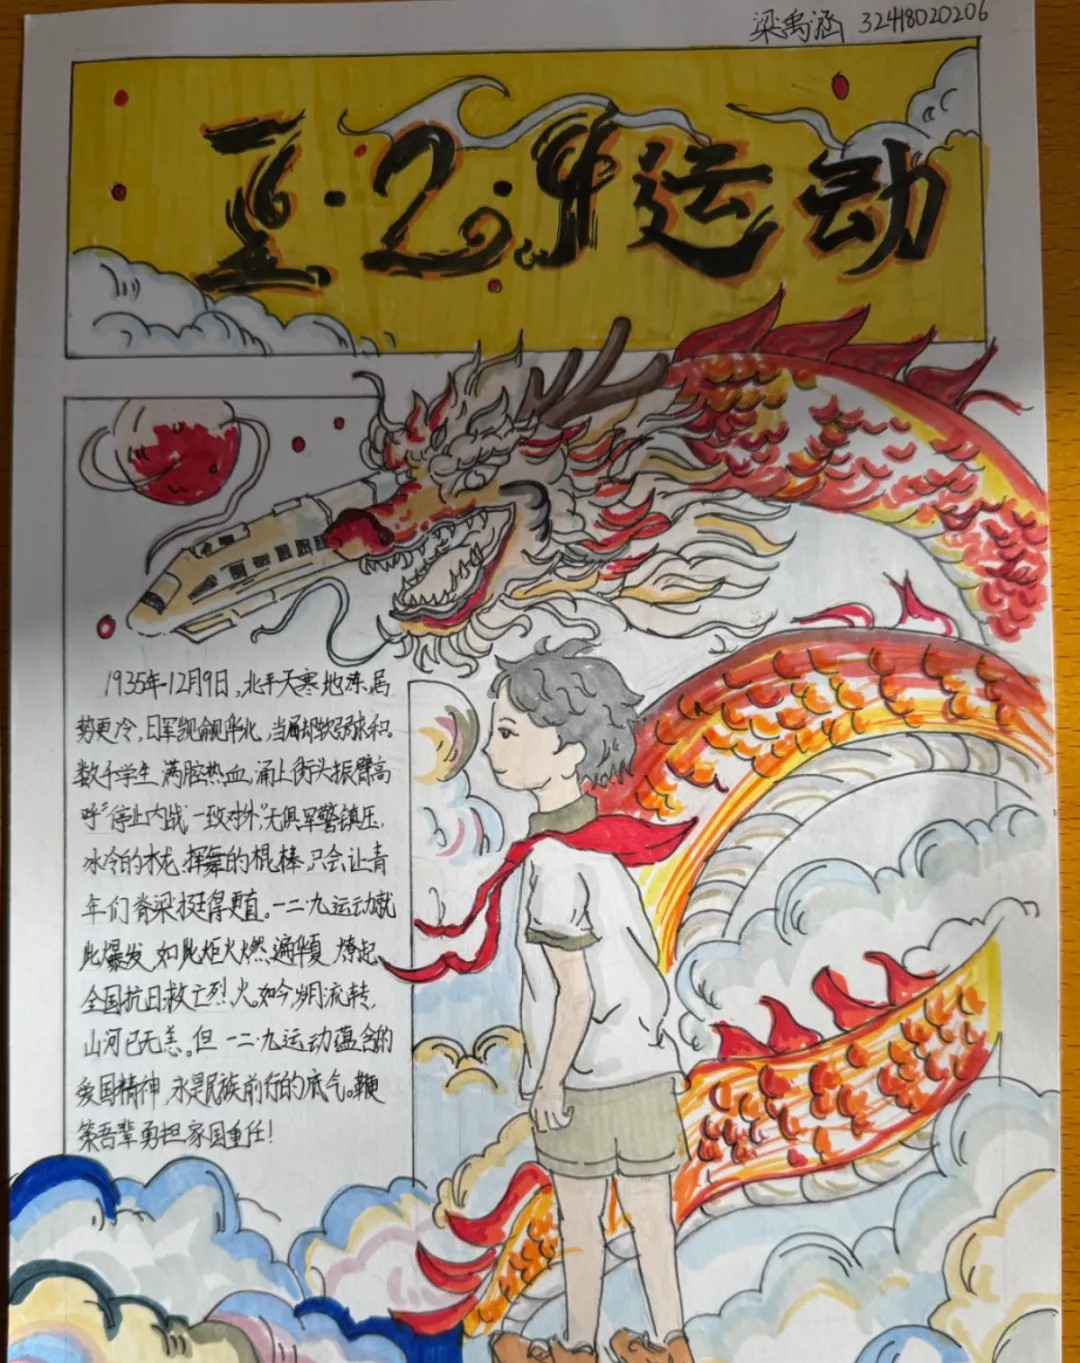 梁禹涵 32418020206
1·2·9运动
1935年12月9日,北平天寒地冻,局
势更冷,日军觊觎华北,当局却软弱求和。
数千学生 满腔热血,涌上街头振臂高
呼“停止内战 一致对外”,无惧军警镇压,
冰冷的水龙 挥舞的棍棒 只会让青
年们脊梁挺得更直。一二·九运动就
此爆发 如此炬火燃遍华夏 燎起
全国抗日救亡烈火。如今,岁月流转,
山河已无恙。但一二·九运动蕴含的
爱国精神,永是民族前行的底气。鞭
策吾辈勇担家国重任!